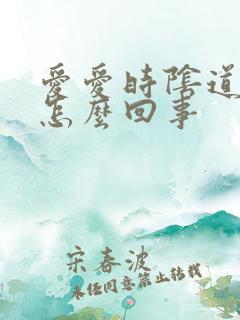 愛愛時陰道
怎麼回事
宋春波
未经同意禁止转载